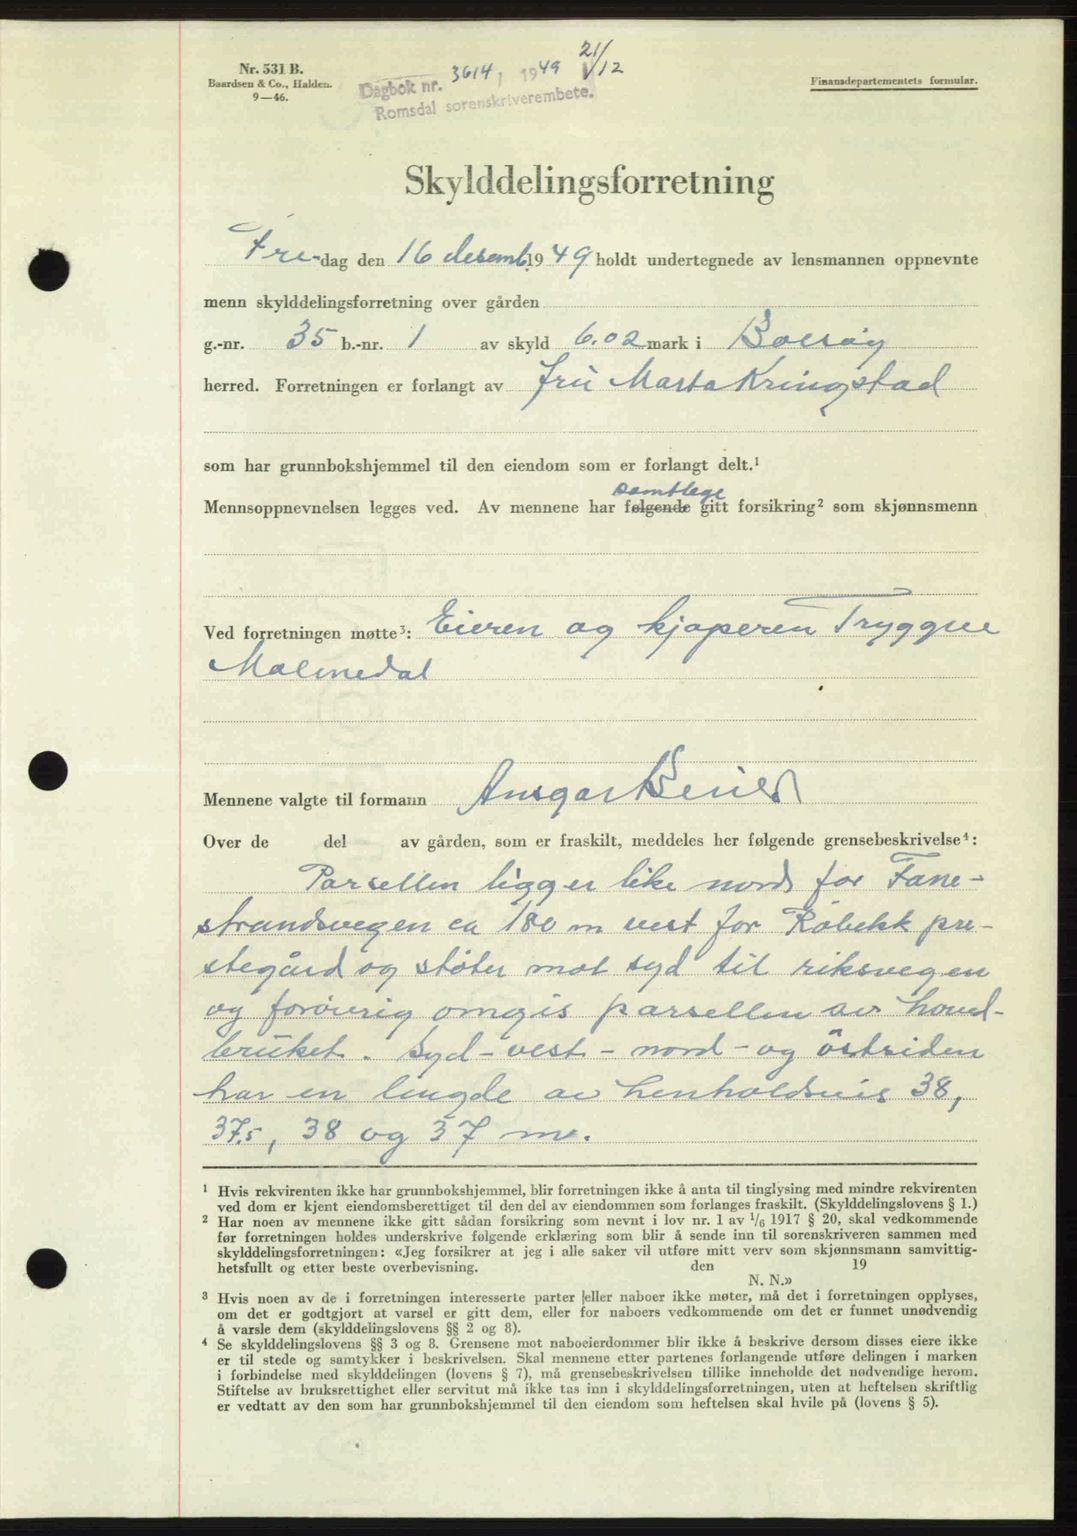 Nr. 531 B.
Baardsen & Co., Halden.
9—46.
Dagbok nr. 3614, 1949 21/12
Romsdal sorenskriverembete.
Finansdepartementets formular.
Skylddelingsforretning
Fre-dag den 16 desemb. 1949 holdt undertegnede av lensmannen oppnevnte
menn skylddelingsforretning over gården
g.-nr. 35 b.-nr. 1 av skyld 6.02 mark i Bolsøy
herred. Forretningen er forlangt av fru Marta Kringstad
som har grunnbokshjemmel til den eiendom som er forlangt delt.¹
samtlege
Mennsoppnevnelsen legges ved. Av mennene har følgende gitt forsikring² som skjønnsmenn
Ved forretningen møtte³: Eieren og kjøperen Tryggve
Malmedal
Mennene valgte til formann Ansgar
Over de del av gården, som er fraskilt, meddeles her følgende grensebeskrivelse⁴:
Parsellen ligger like nord for Fane-
strandsvegen ca 180 m vest for Røbekk pre-
stegård og støter mot syd til riksvegen
og forøvrig omgis parsellen av hoved-
bruket. Syd- vest- nord- og östsiden
har en lengde av henholdsvis 38,
37,5, 38 og 37 m.
¹ Hvis rekvirenten ikke har grunnbokshjemmel, blir forretningen ikke å anta til tinglysing med mindre rekvirenten
ved dom er kjent eiendomsberettiget til den del av eiendommen som forlanges fraskilt. (Skylddelingslovens § 1.)
² Har noen av mennene ikke gitt sådan forsikring som nevnt i lov nr. 1 av 1/6 1917 § 20, skal vedkommende
før forretningen holdes underskrive følgende erklæring som blir å sende inn til sorenskriveren sammen med
skylddelingsforretningen: «Jeg forsikrer at jeg i alle saker vil utføre mitt verv som skjønnsmann samvittig-
hetsfullt og etter beste overbevisning. den 19
N. N.»
³ Hvis noen av de i forretningen interesserte parter eller naboer ikke møter, må det i forretningen opplyses,
om det er godtgjort at varsel er gitt dem, eller for naboers vedkommende om det er funnet unødvendig
å varsle dem (skylddelingslovens §§ 2 og 8).
⁴ Se skylddelingslovens §§ 3 og 8. Grensene mot naboeierdommer blir ikke å beskrive dersom disses eiere ikke
er til stede og samtykker i beskrivelsen. Skal mennene etter partenes forlangende utføre delingen i marken
i forbindelse med skylddelingen (lovens § 7), må grensebeskrivelsen tillike inneholde det nødvendige herom.
Stiftelse av bruksrettighet eller servitut må ikke tas inn i skylddelingsforretningen, uten at heftelsen skriftlig
er vedtatt av den som har grunnbokshjemmel til den eiendom som heftelsen skal hvile på (lovens § 5).